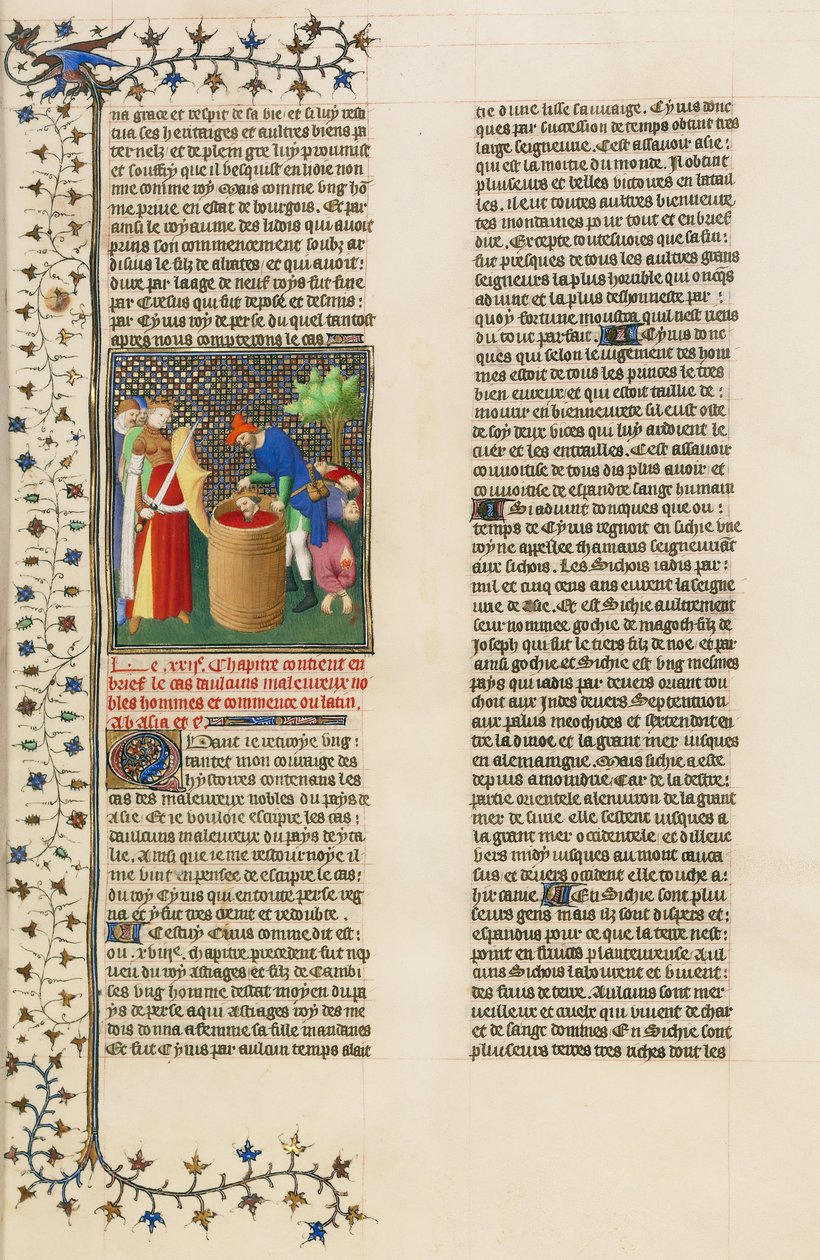 na grace et respit de sa vie / et si luy resti
tua ses heritaiges et aultres biens pa
ternelz / et de plein gre luy promist
et souffry que il vesquist en lidie non
mie comme roy Mais comme vng hõ
me prive en estat de bourgois. Et par
ainsi le royaume des lidois qui avoit
prins son commencement soubz ar
disius le filz de aliates / et qui avoit :
dure par laage de neuf roys fut fine
par Cresus qui fut depose et desmis :
par Cyrus roy de perse du quel tantost
apres nous compterons le cas
Le .xxi͛. Chapitre contient en
brief le cas daulcuns maleureux no
bles hommes et commence ou latin.
Ab Asia et c͛
Quant ie renvoye vng :
tantet mon couraige des
hystoires contenans les
cas des maleureux nobles du pays de
Asie Et ie vouloie escripre les cas :
daulcuns maleureux du pays de yta
lie. Ainsi que ie me restournoye il
me vint en pensee de escripre le cas :
du roy Cyrus qui en toute perse reg
na et y fut tres cremt et redoubte .
Cestuy Cirus comme dit est :
ou .xviii͛. chapitre precedent fut nep
ueu du roy Astiages / et filz de Cambi
ses vng homme destat moyen du pa
ys de perse a qui Astiages roy des me
dois donna a femme sa fille mandanes
Et fut Cyrus par aulcun temps alait
tie dune lisse sauvaige. Cyrus donc
ques par succession de temps obtint tres
large seigneurie. Cest assavoir asie :
qui est la moitie du monde. Il obtint
pluiseurs et belles victoires en batail
les. il eut toutes aultres bieneure
tes mondaines pour tout et en brief
dire. Excepte toutesvoies que sa fin :
fut presques de tous les aultres grans
seigneurs la plus horrible qui oncq̃s
ad vint et la plus deshonneste par :
quoy fortune moustra quil nest riens
du tout parfait. Cyrus donc
ques qui selon le iugement des hom
mes estoit de tous les princes le tres
bien eureux / et qui estoit taillie de :
mourir en bienneurete sil eust oste
de soy deux vices qui luy ardoient le
cuer et les entrailles. Cest assavoir
convoitise de tous dis plus avoir / et
convoitise de espandre sang humain
Si advint doncques que ou :
temps de Cyrus regnoit en sichie vne
royne appellee thamaris seigneuriant
aux sichois. Les Sichois iadis par :
mil et cinq cens ans eurent la seigne
urie de Asie. Et est Sichie aultrement
seur nommee gochie de magoch filz de
Joseph qui fut le tiers filz de noe / et par
ainsi gochie et Sichie est vng mesmes
pays qui iadis par devers oriant tou
choit aux Indes devers Septentrion
aux palus meochides et sextendoit en
tre la dinoe et la grant mer iusques
en alemaingne. Mais sichie a este
depuis amoindrie Car de la destre :
partie orientele alenuiron de la grant
mer de surie elle sestent iusques a
la grant mer occidentele / et dillenc
vers midy iusques au mont cauca
sus et devers occident elle touche a :
hircanie. En Sichie sont plui
seurs gens mais ilz sont dispers et :
espandus pour ce que la terre nest :
point en fruits planteureuse Aul
cuns Sichois labourent et vivent :
des fruis de terre. Aulcuns sont mer
veilleux et cruelx qui vivent de char
et de sange dommes / En Sichie sont
pluiseurs terres tres riches dont les